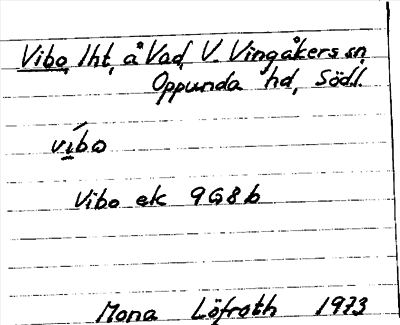 Vibo, lht, å Vad, V. Vingåkers sn,
Oppunda hd, Södl.
ví̱bo
Vibo ek 9G8b
Mona Löfroth 1973